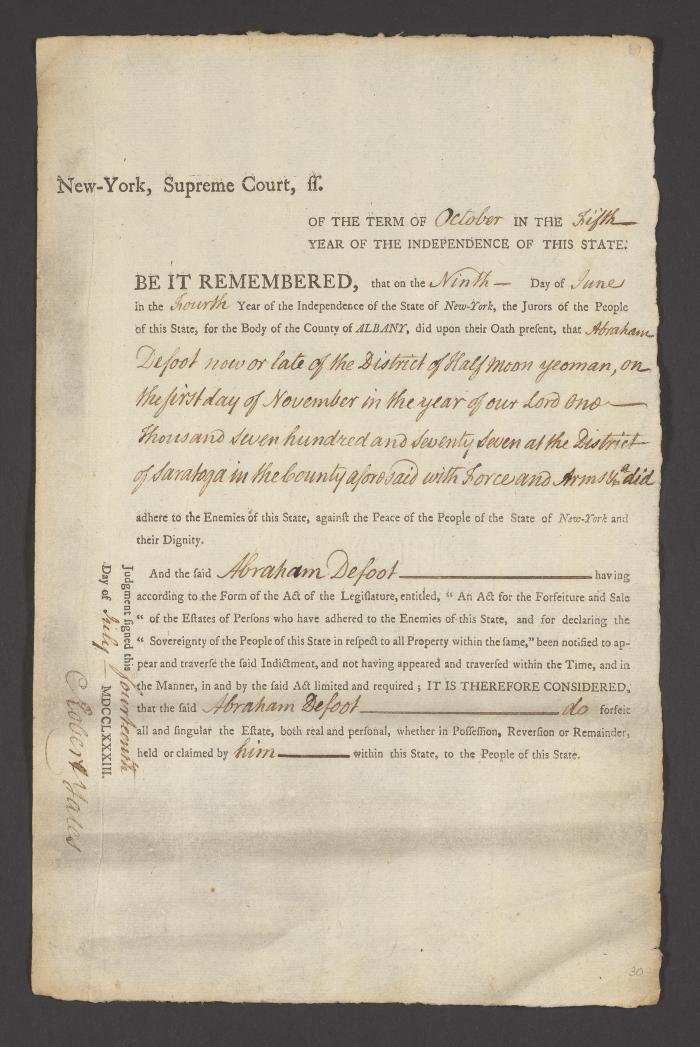 New-York, Supreme Court, ss.
OF THE TERM OF October IN THE Fifth
YEAR OF THE INDEPENDENCE OF THIS STATE.
BE IT REMEMBERED, that on the Ninth Day of June
in the Fourth Year of the Independence of the State of New-York, the Jurors of the People
of this State, for the Body of the County of ALBANY, did upon their Oath present, that Abraham
Defoot now or late of the District of Half Moon yeoman, on
the first day of November in the year of our Lord One
Thousand Seven hundred and Seventy Seven at the District
of Saratoga in the County aforesaid with Force and Arms &ca did
adhere to the Enemies of this State, against the Peace of the People of the State of New-York and
their Dignity.
And the said Abraham Defoot having
according to the Form of the Act of the Legislature, entitled, “ An Act for the Forfeiture and Sale
“ of the Estates of Persons who have adhered to the Enemies of this State, and for declaring the
“ Sovereignty of the People of this State in respect to all Property within the same,” been notified to ap-
pear and traverse the said Indictment, and not having appeared and traversed within the Time, and in
the Manner, in and by the said Act limited and required ; IT IS THEREFORE CONSIDERED,
that the said Abraham Defoot do forfeit
all and singular the Estate, both real and personal, whether in Possession, Reversion or Remainder,
held or claimed by him within this State, to the People of this State.
Judgment signed this fourteenth
Day of July MDCCLXXXIII.
Robert Yates
30